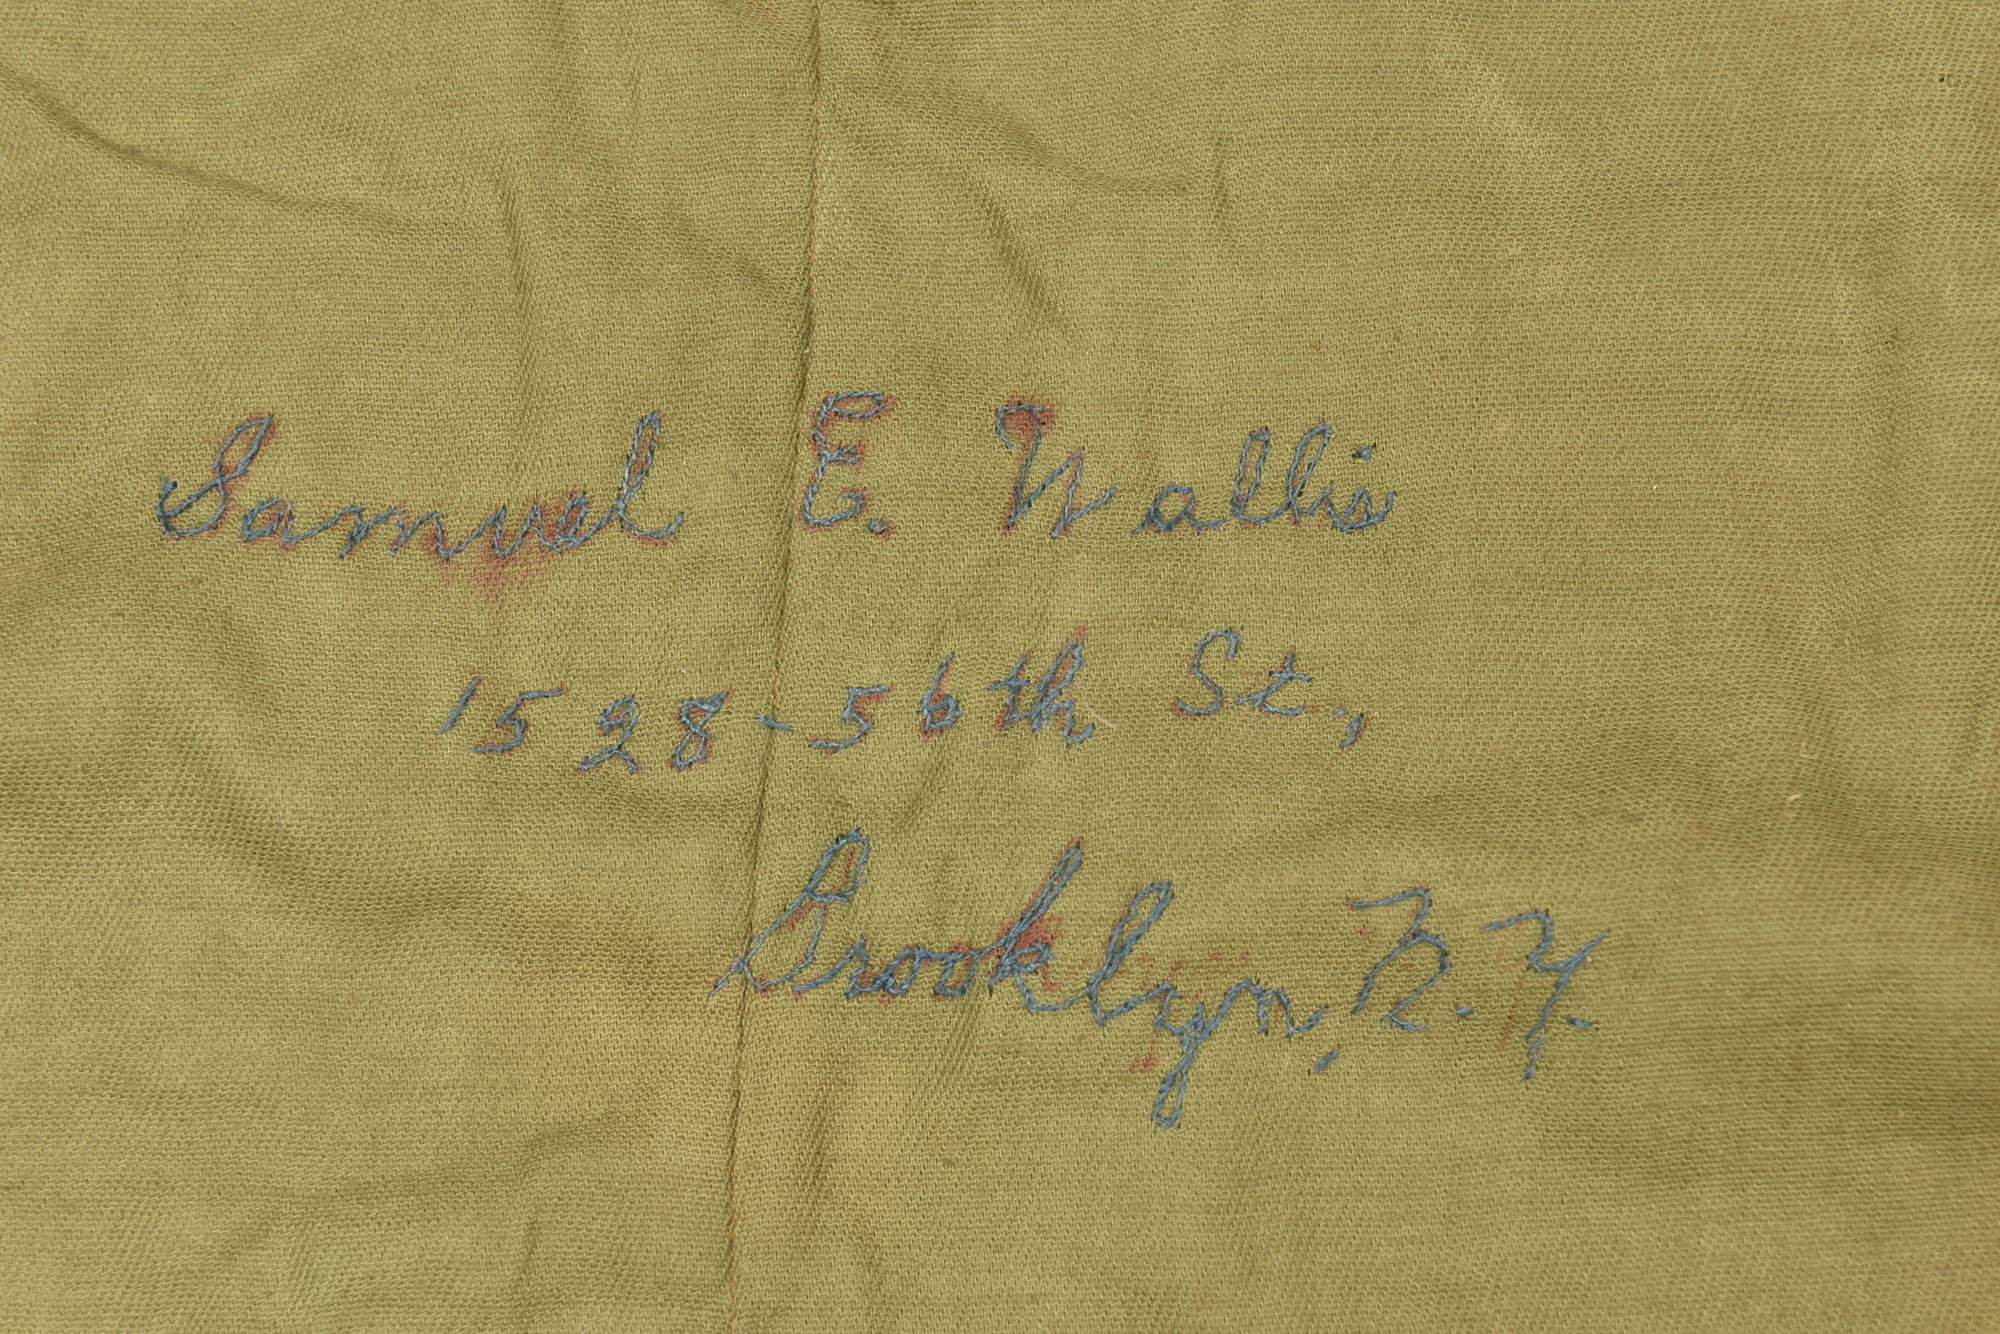 Samuel E. Wallis
1528-56th St.,
Brooklyn, N.Y.